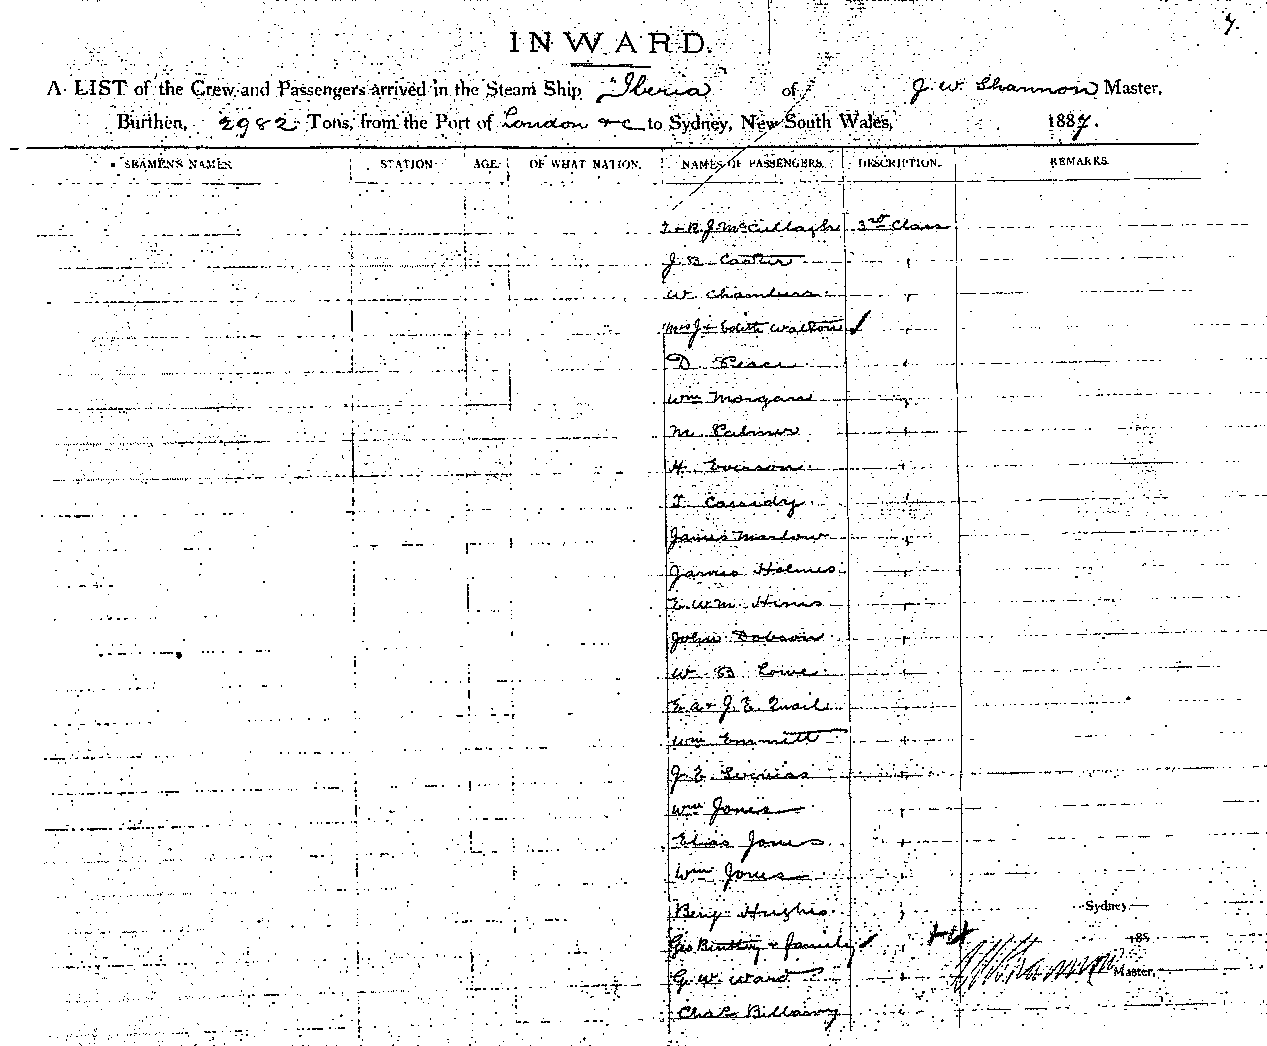 7.
INWARD.
A LIST of the Crew and Passengers arrived in the Steam Ship "Iberia" of J. W. Shannon Master,
Burthen, 2982 Tons, from the Port of London &c to Sydney, New South Wales, 1887.
SEAMEN'S NAMES. STATION. AGE. OF WHAT NATION. NAMES OF PASSENGERS. DESCRIPTION. REMARKS.
J. McCullagh 3rd Class
J. B.
W. Chambers "
Mrs J & Edith "
D. Peace "
Wm Morgan "
M. Palmer "
H. Everson "
T. Cassidy "
James Marlow "
James Holmes "
E. Wm "
John Dobson "
W. B. Lowe "
E. A & J. E. Quail "
Wm Emmett "
J. E. "
Wm Jones "
Elias Jones "
Wm Jones "
Benj Hughes "
Sydney
Geo Bentley & family "
185
G. W. Ward "
J W Shannon Master.
Chas "